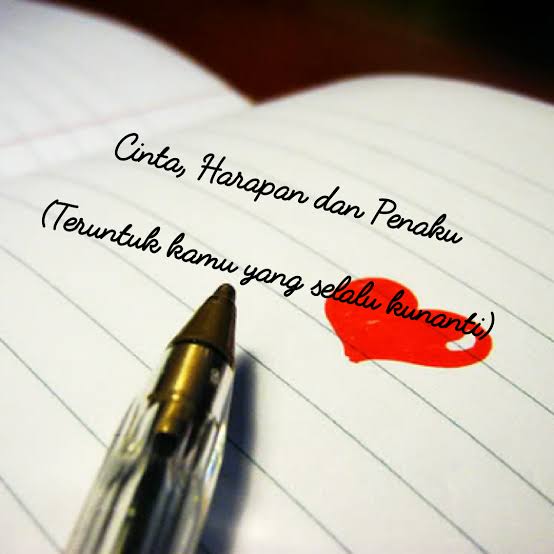 Cinta, Harapan dan Penaku
(Teruntuk kamu yang selalu kunanti)